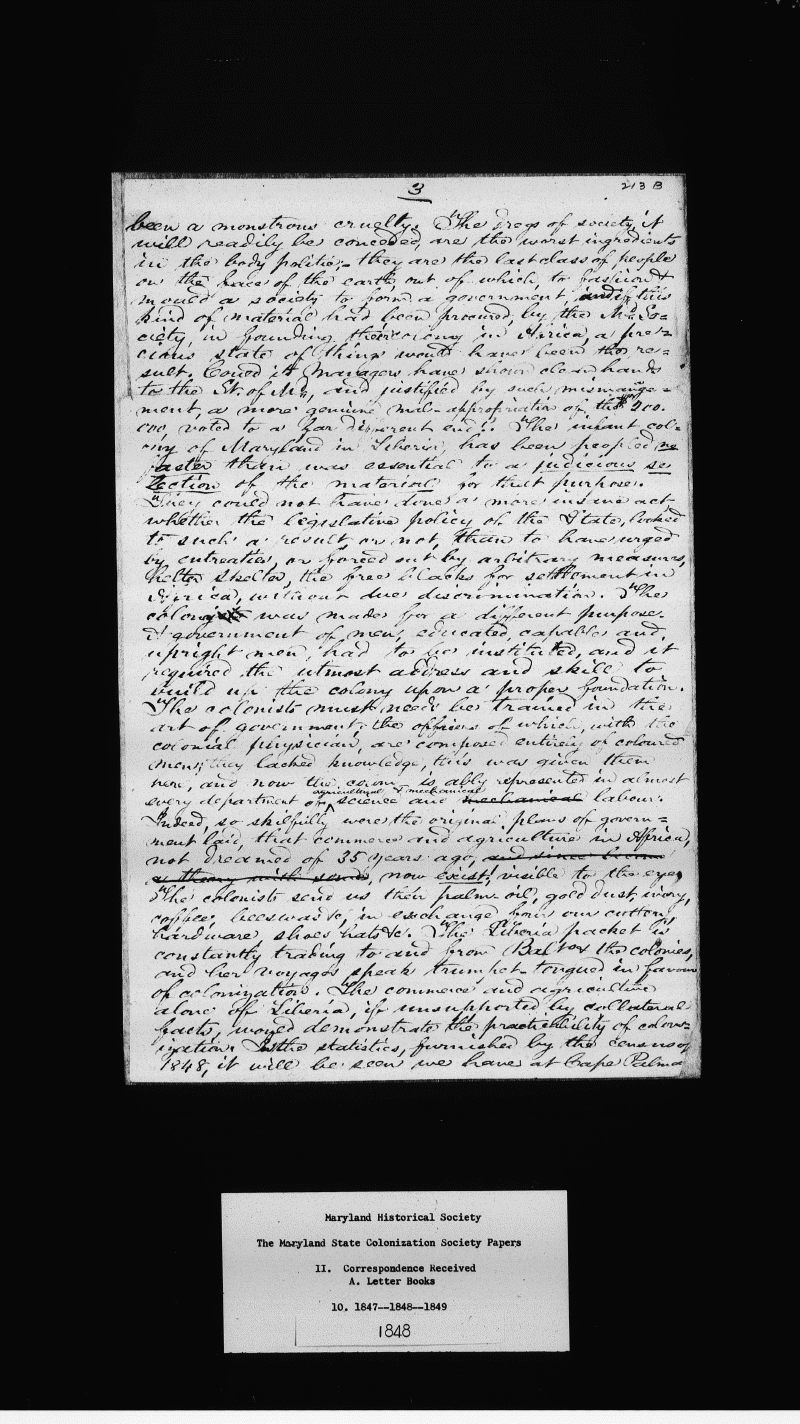 3
213 B
been a monstrous cruelty. The dregs of society, it
will readily be conceded, are the worst ingredients
in the body politic;- they are the last class of people
on the face of the earth, out of which, to fashion &
mould a society to form a government, and if this
kind of material had been procured, by the Md. So=
ciety, in founding their colony in Africa, a pre=
cious state of things would have been the re=
sult. Could its Managers have shown clean hands
to the St. of Md., and justified by such mismanage=
ment, a more genuine mis-appropriation of the $200.
000 voted to a far different end? The infant col=
ony of Maryland in Liberia, has been peopled no
faster than was essential to a judicious se
lection of the material for that purpose.
They could not have done a more insane act
whether the legislative policy of the State, looked
to such a result or not, than to have urged
by entreaties, or forced out by arbitrary measures,
helter skelter, the free blacks for settlement in
Africa, without due discrimination. The
colony was made for a different purpose.
A government of men, educated, capable and,
upright men, had to be instituted, and it
required the utmost address and skill to
build up the colony upon a proper foundation.
The colonists must needs be trained in the
art of government; the officers of which, with the
colonial physician, are composed entirely of coloured
men; they lacked knowledge, this was given them
here, and now the colony is ably represented in almost
agricultural & mechanical
every department of science and mechanical labour.
Indeed, so skilfully were the original plans of govern=
ment laid, that commerce and agriculture in Africa,
not dreamed of 35 years ago, and since
a theory with some, now exist, visible to the eye,
The colonists send us their palm oil, gold dust, ivory,
coffee, beeswax &c, in exchange for our cotton,
hardware shoes hats &c. The Liberia packet is
constantly trading to and from Balto & the colonies,
and her voyages speak trumpet-tongued in favour
of colonization. The commerce and agriculture
alone of Liberia, if unsupported by collateral
facts, would demonstrate the practicability of colon=
ization. In the statistics, furnished by the census of
1848, it will be seen we have at Cape Palmas
Maryland Historical Society
The Maryland State Colonization Society Papers
II. Correspondence Received
A. Letter Books
10. 1847--1848--1849
1848